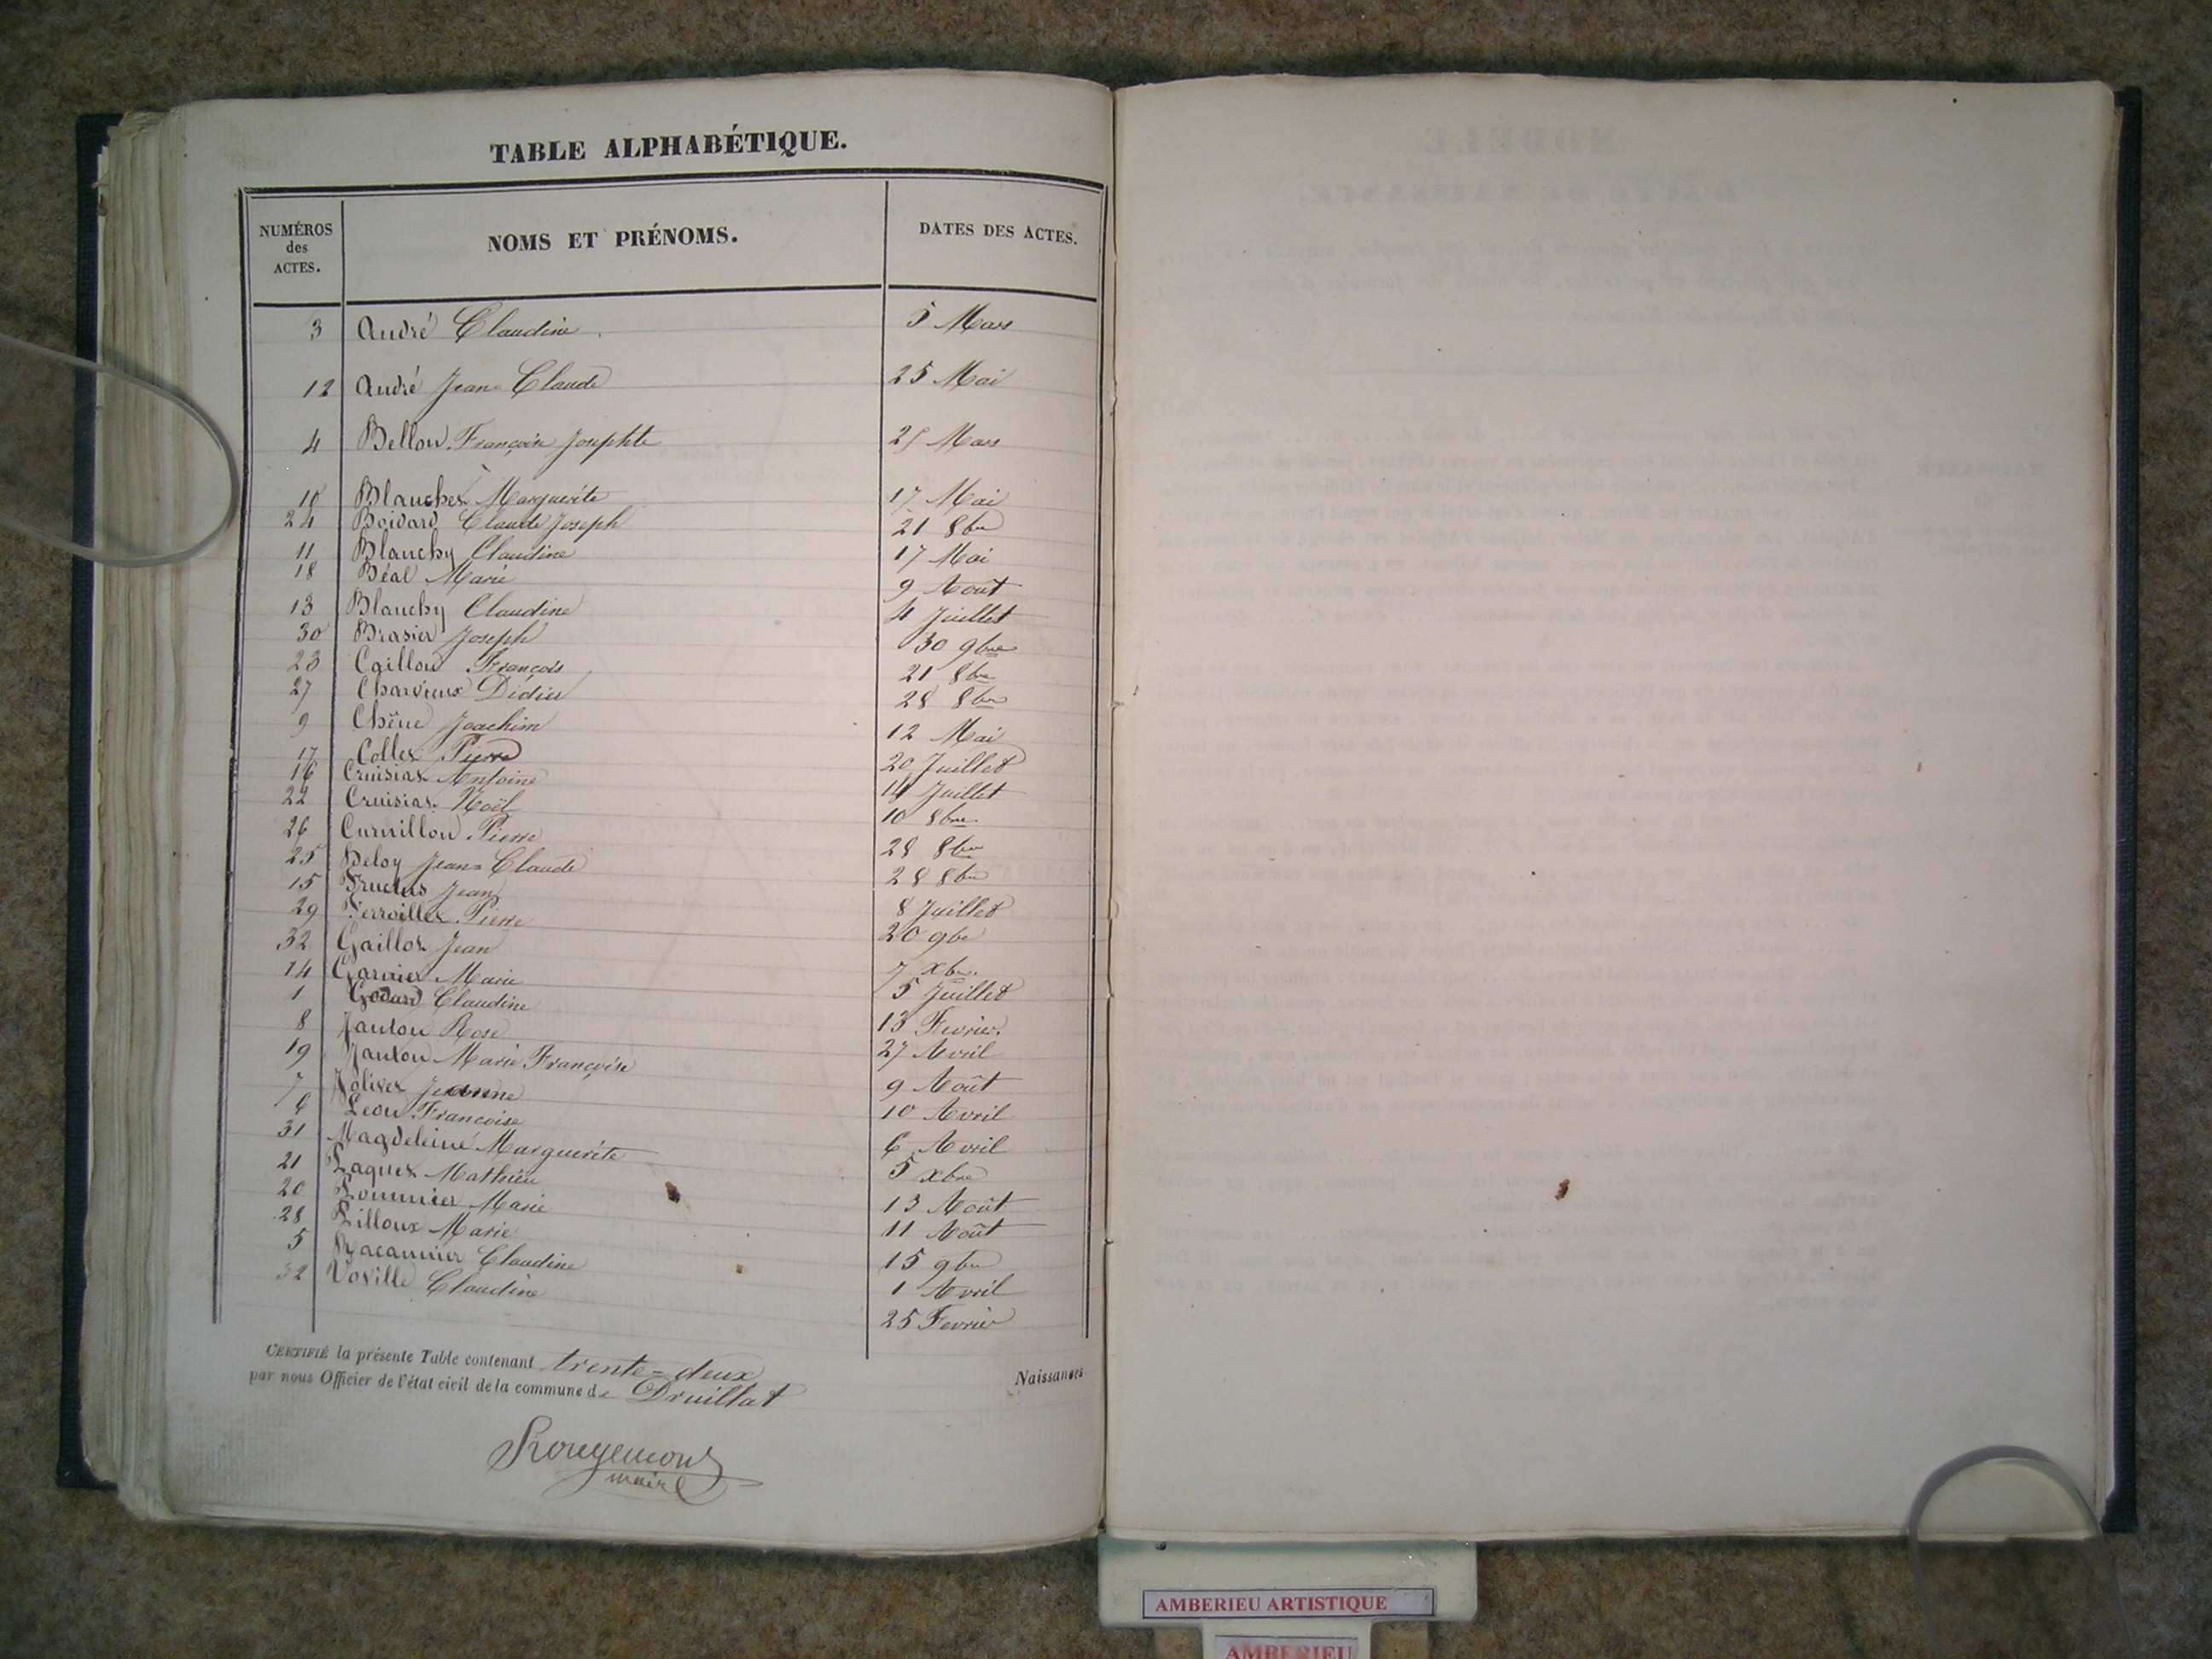 TABLE ALPHABÉTIQUE.
NUMÉROS des ACTES. NOMS ET PRÉNOMS. DATES DES ACTES.
3 André Claudine 5 Mars
12 André Jean Claude 25 Mai
4 Bellou Françoise Josephte Mars
10 Blanchet Marguerite 17 Mai
24 Boidard Claude Joseph 21 8bre
11 Blanchy Claudine 17 Mai
18 Béal Marie 9 Août
13 Blanchy Claudine 4 Juillet
30 Brasier Joseph 30 9bre
23 Caillou François 21 8bre
27 Charvieux Didier 28 8bre
9 Chêne Joachim 12 Mai
17 Collet Pierre 20 Juillet
16 Cruisiat Antoine 14 Juillet
22 Cruisiat Noël 10 8bre
26 Curnillon Pierre 28 8bre
25 Deloy Jean-Claude 28 8bre
15 Fructus Jean 8 Juillet
29 Ferroillet Pierre 20 9bre
32 Gaillot Jean 7 xbre
14 Garnier Marie 5 Juillet
1 Godard Claudine 13 Fevrier
8 Janton Rose 27 Avril
19 Janton Marie Françoise 9 Août
7 Jolivet Jeanne 10 Avril
6 Leon Francoise 6 Avril
31 Magdeleine Marguerite 5 xbre
21 Paquet Mathieu 13 Août
20 Pommier Marie 11 Août
28 Pilloux Marie 15 9bre
5 Racannier Claudine 1 Avril
32 Voville Claudine 25 Fevrier
CERTIFIÉ la présente Table contenant trente-deux Naissances
par nous Officier de l'état civil de la commune de Druillat
Rougemont
maire
AMBERIEU ARTISTIQUE
AMBERIEU